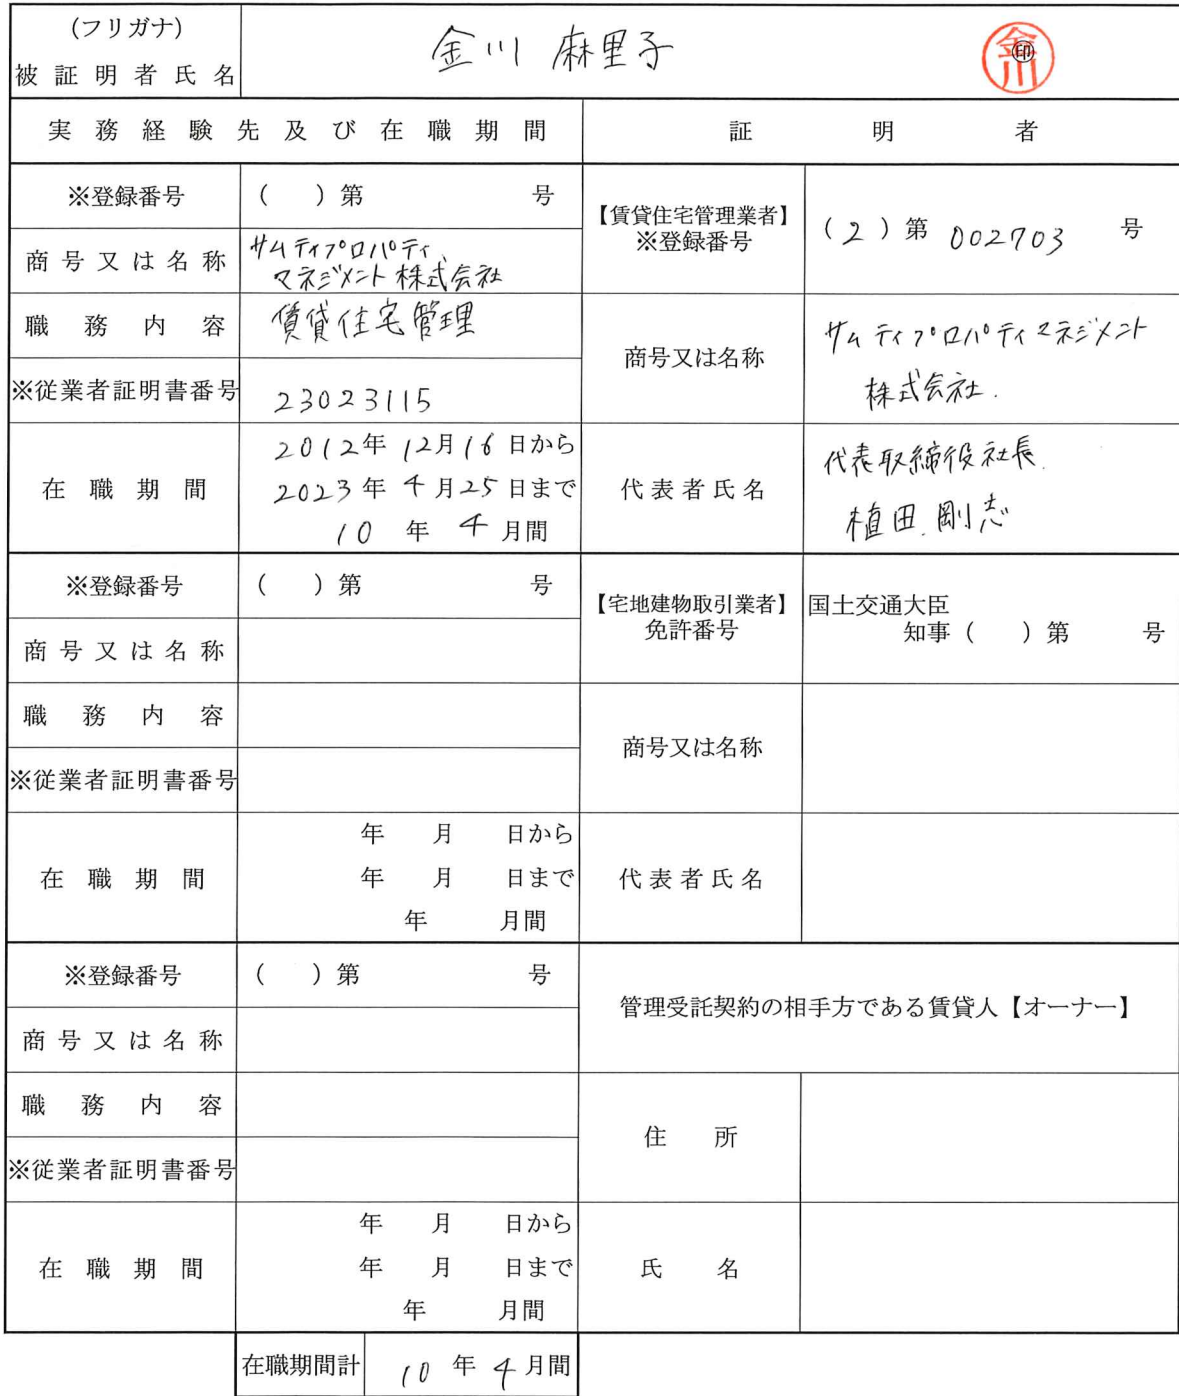 (フリガナ)
被証明者氏名
金川 麻里子
金川
㊞
実務経験先及び在職期間
証明者
※登録番号
( )第 号
【賃貸住宅管理業者】
※登録番号
(2)第 002703 号
商号又は名称
サムティプロパティ
マネジメント株式会社
職務内容
賃貸住宅管理
商号又は名称
サムティプロパティマネジメント
株式会社.
※従業者証明書番号
23023115
在職期間
2012年12月16日から
2023年4月25日まで
10年4月間
代表者氏名
代表取締役社長
植田 剛志
※登録番号
( )第 号
【宅地建物取引業者】
免許番号
国土交通大臣
知事( )第 号
商号又は名称
職務内容
商号又は名称
※従業者証明書番号
在職期間
年 月 日から
年 月 日まで
年 月間
代表者氏名
※登録番号
( )第 号
管理受託契約の相手方である賃貸人【オーナー】
商号又は名称
職務内容
住所
※従業者証明書番号
在職期間
年 月 日から
年 月 日まで
年 月間
氏名
在職期間計
10年4月間